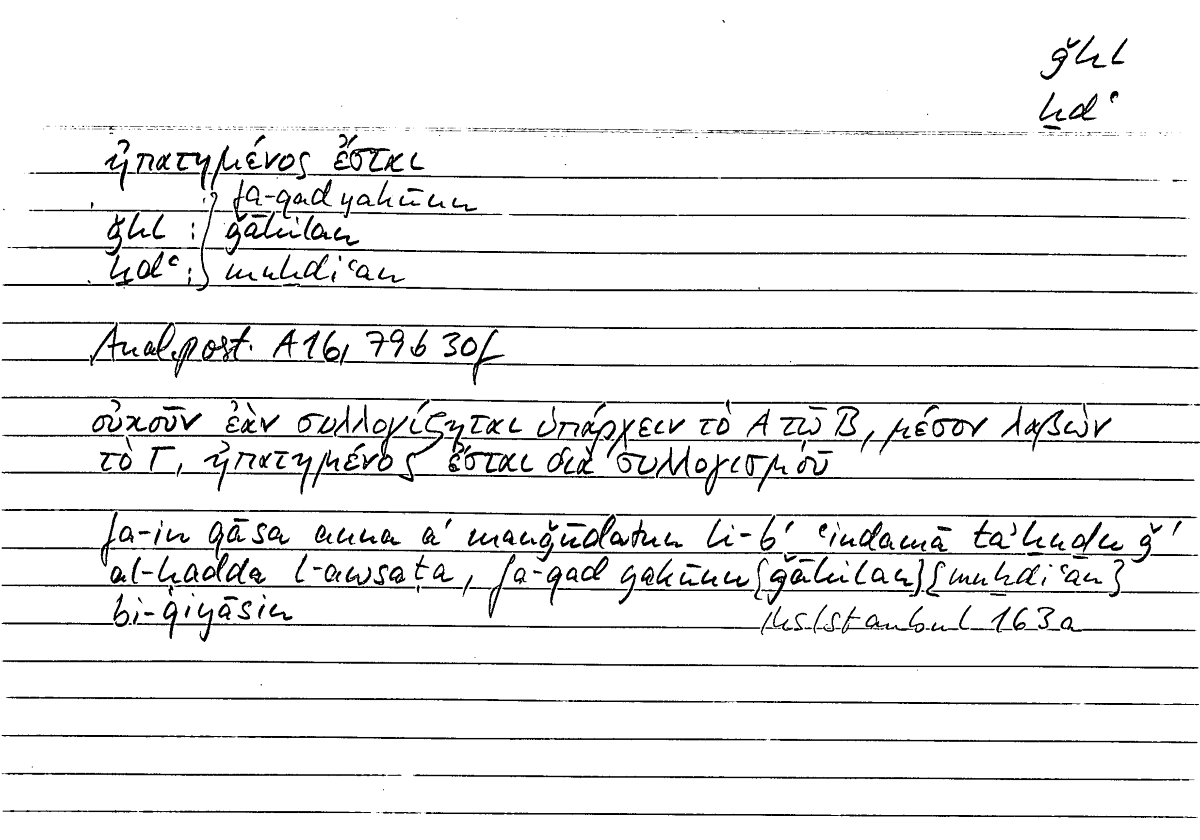 ǧhl
ḫdʿ
ἠπατημένος ἔσται
fa-qad yakūnu
ǧhl : ǧāhilan
ḫdʿ : muḫdiʿan
Anal.post. A16, 79b30f
οὐκοῦν ἐὰν συλλογίζηται ὑπάρχειν τὸ Α τῷ Β, μέσον λαβὼν
τὸ Γ, ἠπατημένος ἔσται διὰ συλλογισμοῦ
fa-in qāsa anna a' mauǧūdatun li-b' ʿindamā ta'ḫudu ǧ'
al-ḥadda l-awsaṭa, fa-qad yakūnu {ǧāhilan} {muḫdiʿan}
bi-qiyāsin
Hs Istanbul 163a